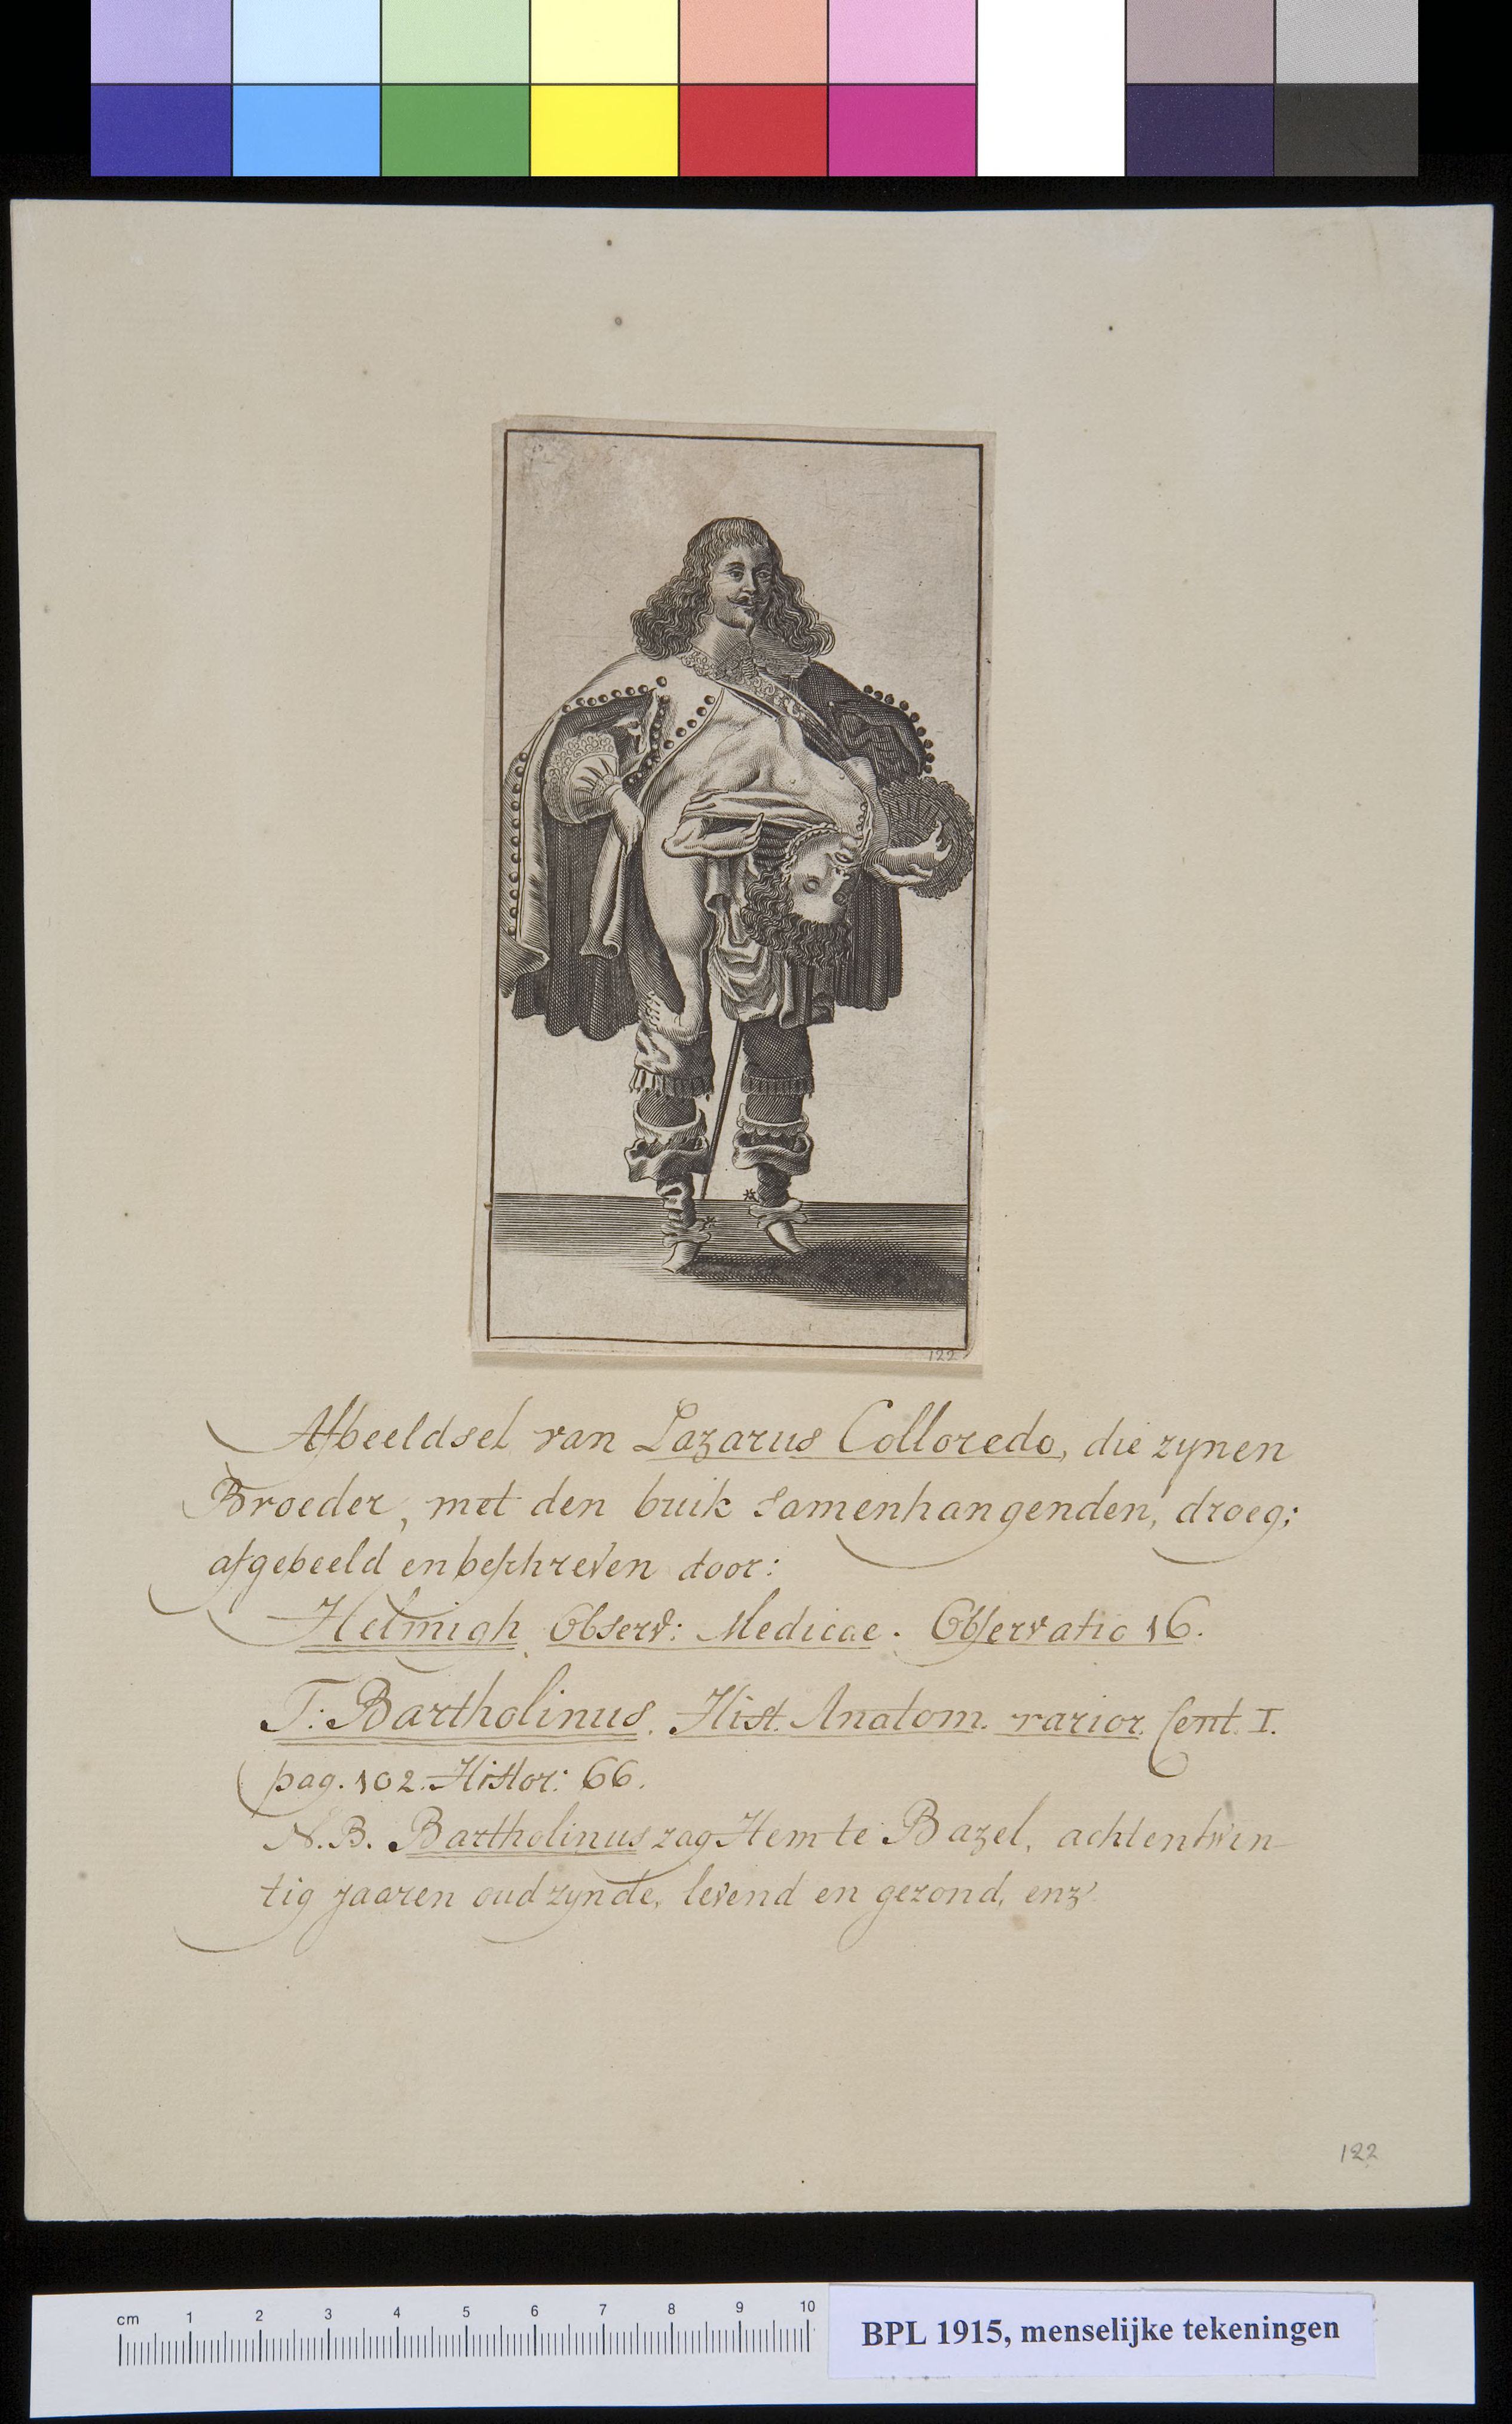 122
Afbeeldsel van Lazarus Colloredo, die zynen
Broeder, met den buik samenhangenden, droeg;
afgebeeld en beschreven door:
Helmigh Observ: Medicae. Observatio 16.
T: Bartholinus. Hist. Anatom. rarior. Cent. I.
pag. 102. Histor: 66.
N.B. Bartholinus zag Hem te Bazel, achtentwin-
tig jaaren oud zynde, levend en gezond, enz.
122
cm 1 2 3 4 5 6 7 8 9 10
BPL 1915, menselijke tekeningen